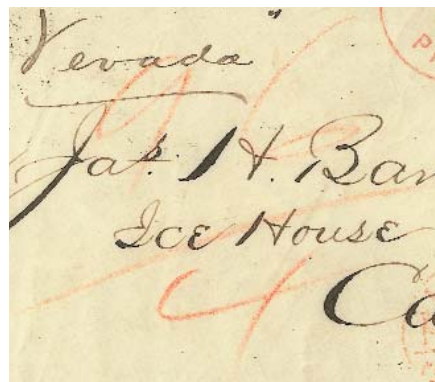 Nevada"
Jas. H. Bar
Ice House
Ca